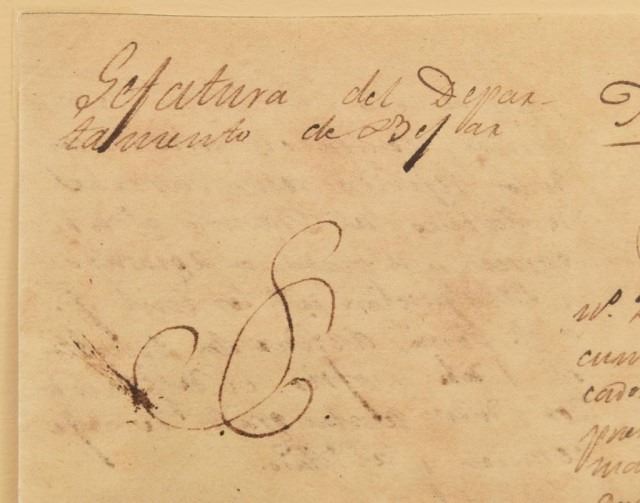 Gefatura del Depar-
tamento de Bejar
nº.
cum
cado
pre
ma